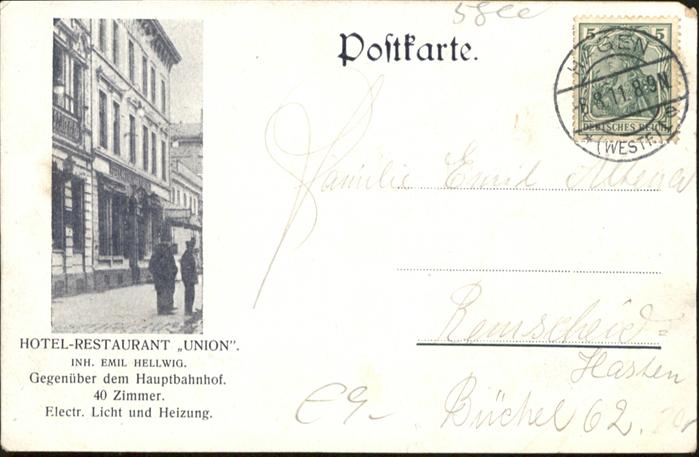 58ee
Postkarte.
5 5
DEUTSCHES REICH
HAGEN
6.8.11.8-9N
* (WESTF.) 
Familie Emil
Remscheid=
Hasten
Büchel 62.
€9-
HOTEL-RESTAURANT „UNION”.
INH. EMIL HELLWIG.
Gegenüber dem Hauptbahnhof.
40 Zimmer.
Electr. Licht und Heizung.